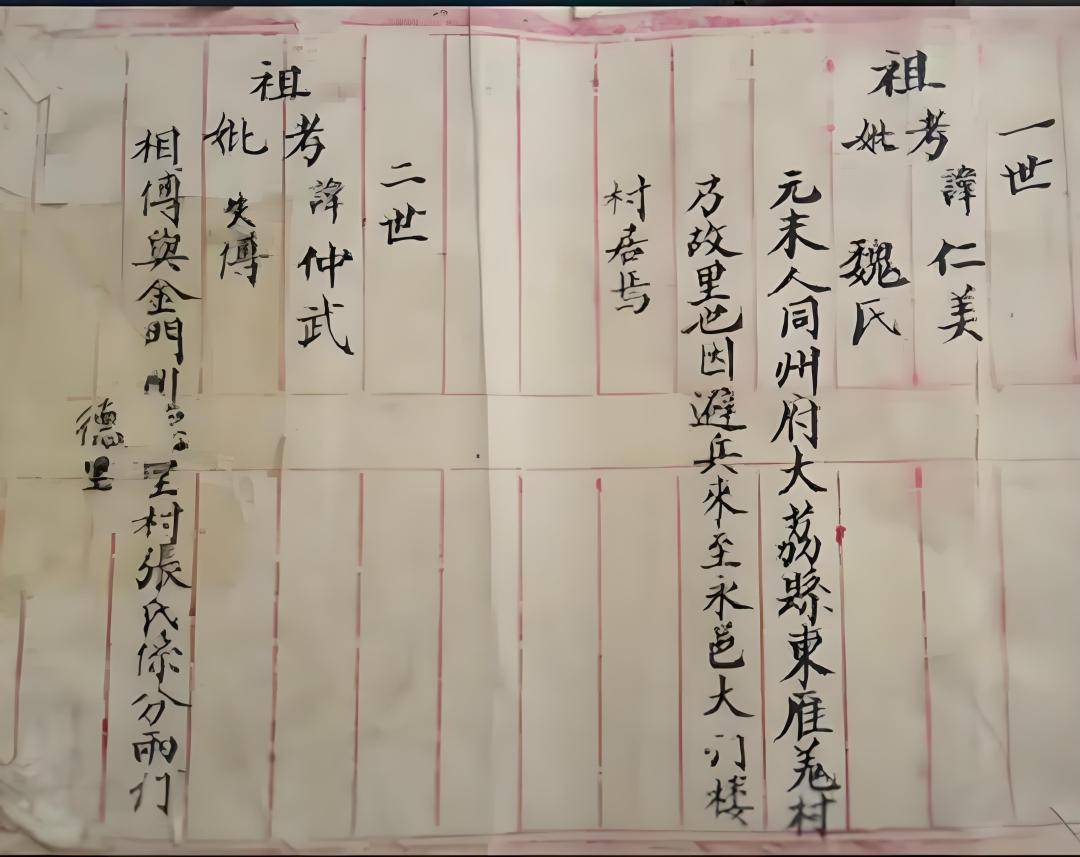 一世
祖考諱仁美
妣 魏氏
元末人同州府大荔縣東雁羌村
乃故里也因避兵來至永邑大门楼
村居焉
二世
祖考諱仲武
妣失傳
相傳與金門村張氏係分兩门
德